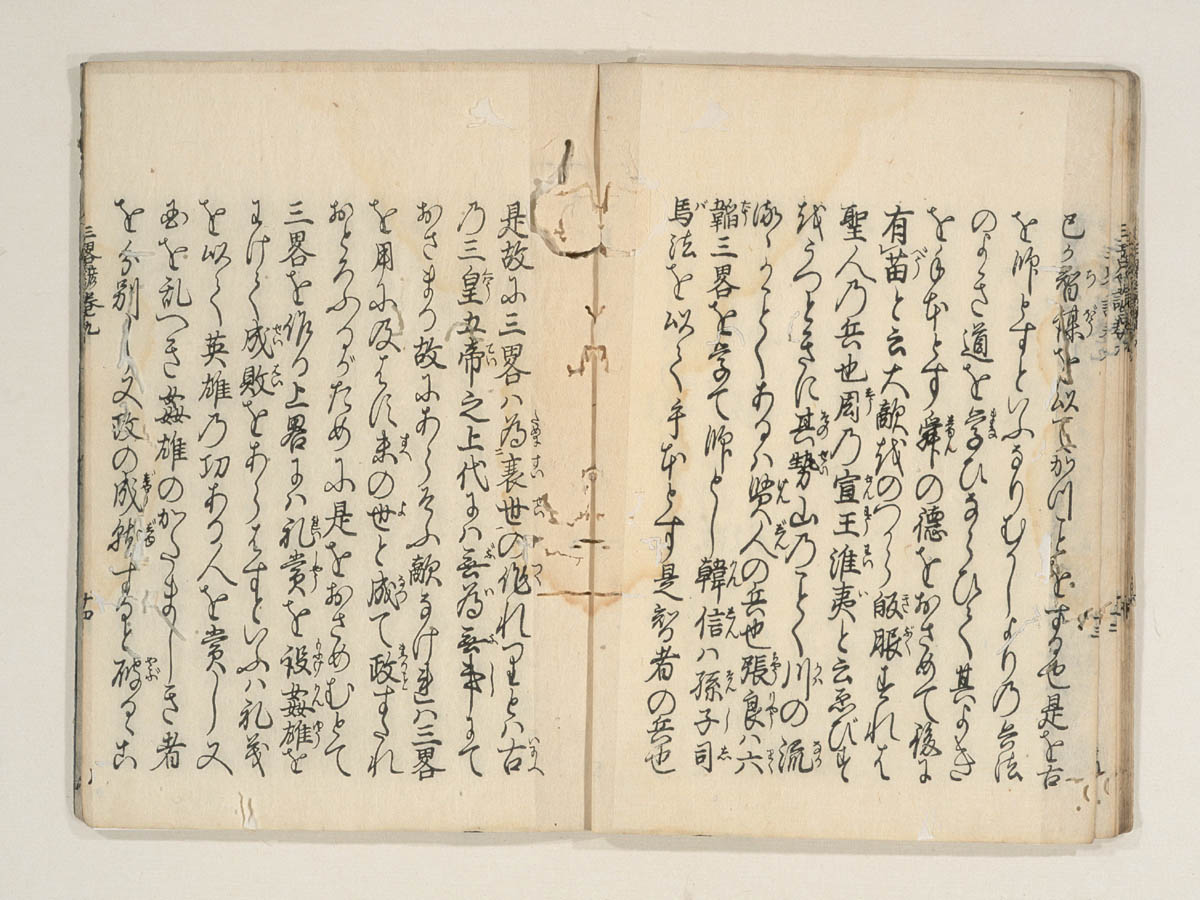 已か智謀を以てかつことをする也是を古
を師とすといふなりむかしよりの兵法
のよき道を学ひならひて其よき
を手本とす舜の徳をおさめて後に
有苗と云大敵おのつから皈服すれは
聖人乃兵也周乃宣王淮夷と云ゑびす
をうつときに其勢山のことく川の流
るゝことくあるハ賢人の兵也張良ハ六
韜三畧を学て師とし韓信ハ孫子司
馬法を以て手本とす是智者の兵也
是故に三畧ハ為衰世の作れりとハ古
乃三皇五帝之上代にハ無為無事にて
おさまる故にあらそふ敵なけれハ三畧
を用に及はす末の世と成て政すたれ
おとろふるがために是をおさめむとて
三畧を作る上畧にハ礼賞を設姦雄を
わけて成敗をあらはすといふハ礼義
を以て英雄乃功ある人を賞し又
国を乱へき姦雄のかたましき者
を分別し又政の成就すると破るゝこ
三畧諺 巻九
十四